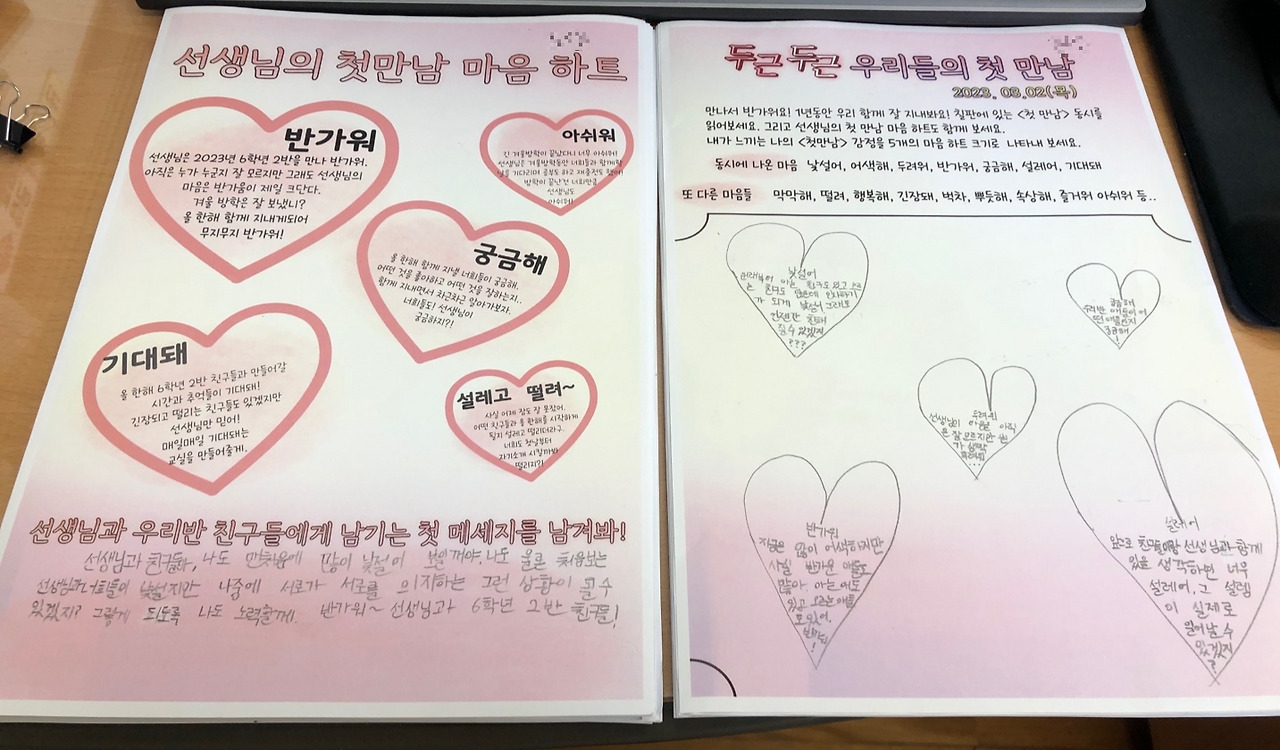 선생님의 첫만남 마음 하트
반가워
선생님은 2023년 6학년 2반을 만나 반가워.
아직은 누가 누군지 잘 모르지만 그래도 선생님의
마음은 반가움이 제일 크단다.
겨울 방학은 잘 보냈니?
올 한해 함께 지내게되어
무지무지 반가워!
아쉬워
긴 겨울방학이 끝났다니 너무 아쉬워!
선생님은 겨울방학동안 너희들과 함께할
날을 기다리며 공부도 하고 재충전도 했어!
방학이 끝난건 너희만큼
선생님도
아쉬워!
궁금해
올 한해 함께 지낼 너희들이 궁금해.
어떤 것을 좋아하고 어떤 것을 잘하는지..
함께 지내면서 차근차근 알아가보자.
너희들도! 선생님이
궁금하지?!
기대돼
올 한해 6학년 2반 친구들과 만들어갈
시간과 추억들이 기대돼!
긴장되고 떨리는 친구들도 있겠지만
선생님만 믿어!
매일매일 기대돼는
교실을 만들어줄게.
설레고 떨려~
사실 어제 잠도 잘 못잤어.
어떤 친구들과 올 한해를 시작하게
될지 설레고 떨리더라구.
너희도 첫날부터
자기소개 시킬까봐
떨리지?!
선생님과 우리반 친구들에게 남기는 첫 메세지를 남겨봐!
선생님과 친구들아, 나도 만찻음에 많이 낯설어 보일꺼야. 나도 물론 처음보는
선생님과 너희들이 낯설지만 나중에 서로가 서로를 의지하는 그런 상황이 올 수
있겠지? 그렇게 되도록 나도 노력할게. 반가워~ 선생님과 6학년 2반 친구들!
두근두근 우리들의 첫 만남
2023. 03.02(목)
만나서 반가워요! 1년동안 우리 함께 잘 지내봐요! 칠판에 있는 <첫 만남> 동시를
읽어보세요. 그리고 선생님의 첫 만남 마음 하트도 함께 보세요.
내가 느끼는 나의 <첫만남> 감정을 5개의 마음 하트 크기로 나타내 보세요.
동시에 나온 마음 낯설어, 어색해, 두려워, 반가워, 궁금해, 설레어, 기대돼
또 다른 마음들 막막해, 떨려, 행복해, 긴장돼, 벅차, 뿌듯해, 속상해, 즐거워 아쉬워 등..
낯설어
아는 친구도 있고 모르
는 친구도 있는데 인사하기
가 되게 낯설어 그래도
언젠간 친해
질수 있겠지
???
궁금해
우리반 애들이 어
떤 애들인지
궁금해
!
두려워
선생님이 아직
은 잘 모르지만
가
두려워
...
반가워
지금은 많이 어색하지만
사실 반가운 애들도
많아. 아는 애도
있고 모르는 애들
도 있어.
반가워
!
설레어
앞으로 친구들이랑 선생님과 함께
있을 생각하면 너무
설레어. 그 설렘
이 실제로
일어날 수
있겠지
?